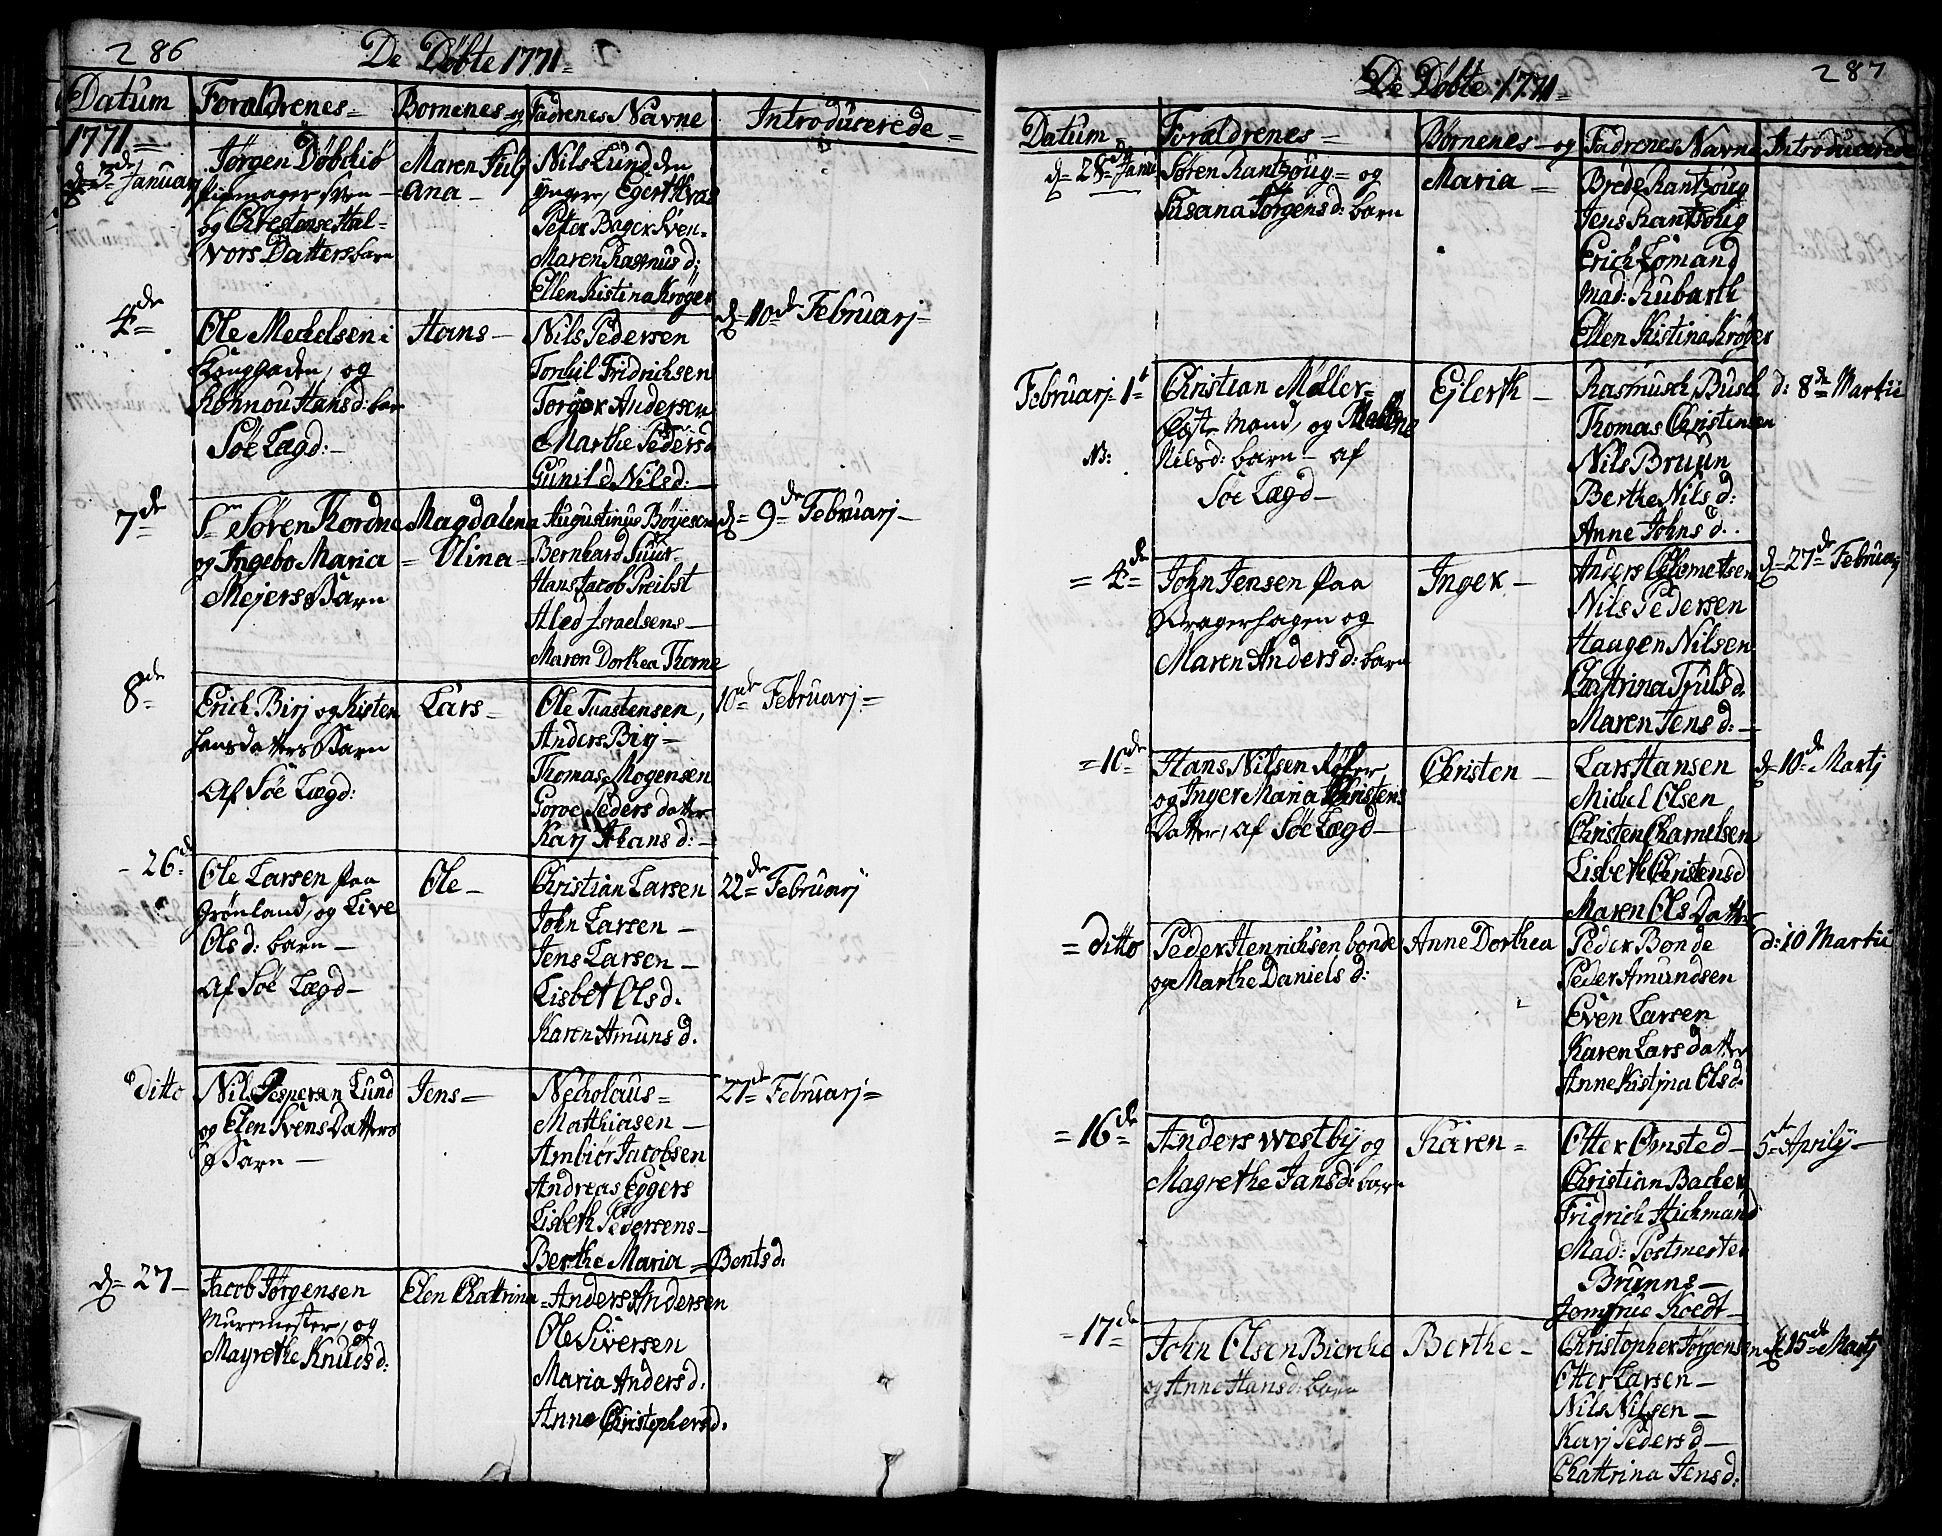 286
De Döbte 1771
Datum
Foraldrenes
Bornenes og
Fadrenes Navne
Introducerede
1771
d 3de Januarj
Jörgen Döbchiö
Svен
og Chrestense Hal-
vors Datters barn
Maren Julj
ana
Nils Lund den
ÿnger, Egert Kras
Peter Bager Sven
Maren Rasmus d:
Ellen Kistina Kröger
4de
Ole Mechelsen i
Konggaden, og
Rönnou Hans d: barn
Söe Lægd:
Hans
Nils Pedersen
Torkil Fridrichsen
Torger Andersen
Marthe Peders d
Gunild Nils d:
d 10de Februarj
7de
Sr Sören Thordne
og Ingebo Maria
Mejers Barn
Magdalena
Olina
Augustinus Böyesen
Bernhard Suur
Hans Jacob Preibst
Aled Israelsens
Maren Dorthea Thorne
d 9de Februarj
8de
Erich Birj og Kisten
Hansdatters Barn
Af Söe Lægd:
Lars
Ole Tuastensen,
Anders Birj
Thomas Mogensen
Goroe Peders datter
Karj Hans d:
10de Februarj
26de
Ole Larsen paa
Grönland, og Live
Ols d: barn
Af Söe Lægd
Ole
Christian Larsen
John Larsen
Jens Larsen
Lisbet Ols d.
Karen Amuns d.
22de Februarj
ditto
Nils Jespersen Lund
og Elen Svens Datters
Barn
Jens
Nicholaus
Matthiasen
Ambiör Jacobsen
Andreas Eggers
Lisbeth Pedersens
Berthe Maria Bents d:
27de Februarj
d 27
Jacob Jörgensen
Muremester, og
Magrethe Knuds d:
Elen Chattrina
Anders Andersen
Ole Siversen
Maria Anders d.
Anne Christophers d.
287
De Döbte 1771
Datum
Foraldrenes
Börnenes og
Fadrenes Navne
Introducerede
d 28de Janu
Sören Rantzoug og
Susana Jörgens d: barn
Maria
Brede Rantzoug
Jens Rantzoug
Erich Lomand
Mad: Rubarth
Ellen Kistina Kröger
Februarj 1t
NB:
Christian Møller
Mand, og Mallene
Nils d: barn af
Söe Lægd
Ejlerth
Rasmus Busch
Thomas Christensen
Nils Bruun
Berthe Nils d:
Anne Johns d.
d: 8de Martii
4de
John Jensen paa
Kragerhagen og
Maren Anders d: barn
Inger
Anders Clemetsen
Nils Pedersen
Haagen Nilsen
Cattrina Truls d.
Maren Jens d:
d 27de Februarj
10de
Hans Nilsen
og Inger Maria Christens
Datter, af Söe Lægd
Christen
Lars Hansen
Mickel Olsen
Christen Charnelsen
Lisbeth Christens d
Maren Ols Datter
d 10de Martj
ditto
Peder Henrichsen bonde
og Marthe Daniels d:
Anne Dorthea
Peder Bonde
Peder Amundsen
Even Larsen
Karen Lars datter
Anne Kistjna Ols d.
d: 10 Martii
16de
Anders westbÿ og
Magrethe Jans d: barn
Karen
Otter Omsted
Christian Backer
Fridrich Hichmand
Mad: Postmester
Brunns
Jomfrue Koedt
5de Aprilÿ
17de
John Olsen Bierche
og Anne Hans d: barn
Berthe
Christopher Jörgensen
Otter Larsen
Nils Nilsen
Karj Peders d
Chattrina Jens d:
d 15de Martj